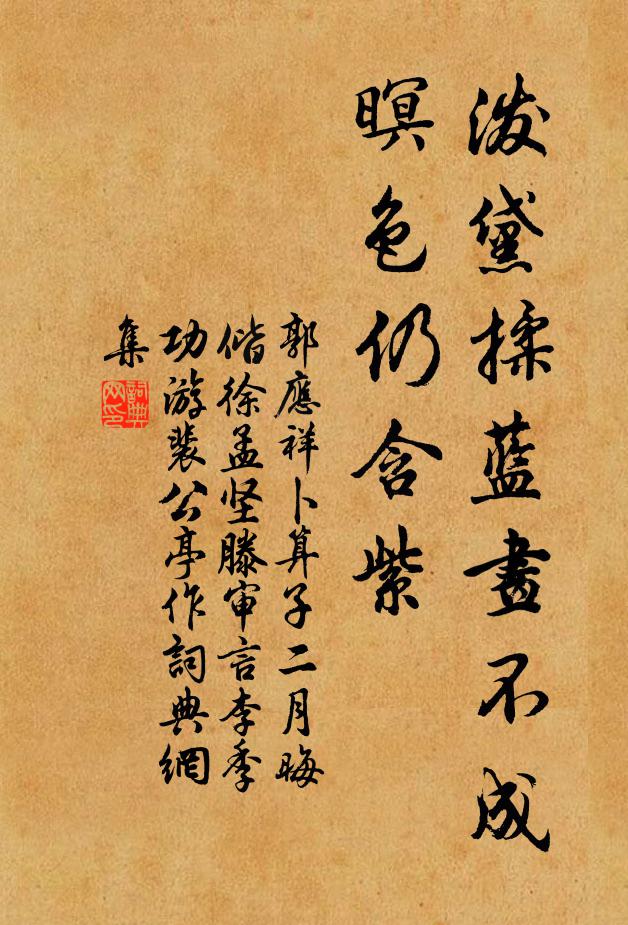 泼黛揉藍畫不成
暝色仍含紫
郭應祥卜算子二月晦
偕徐孟坚滕审言李季
功游裴公亭作詞典網
集
詞典
网印